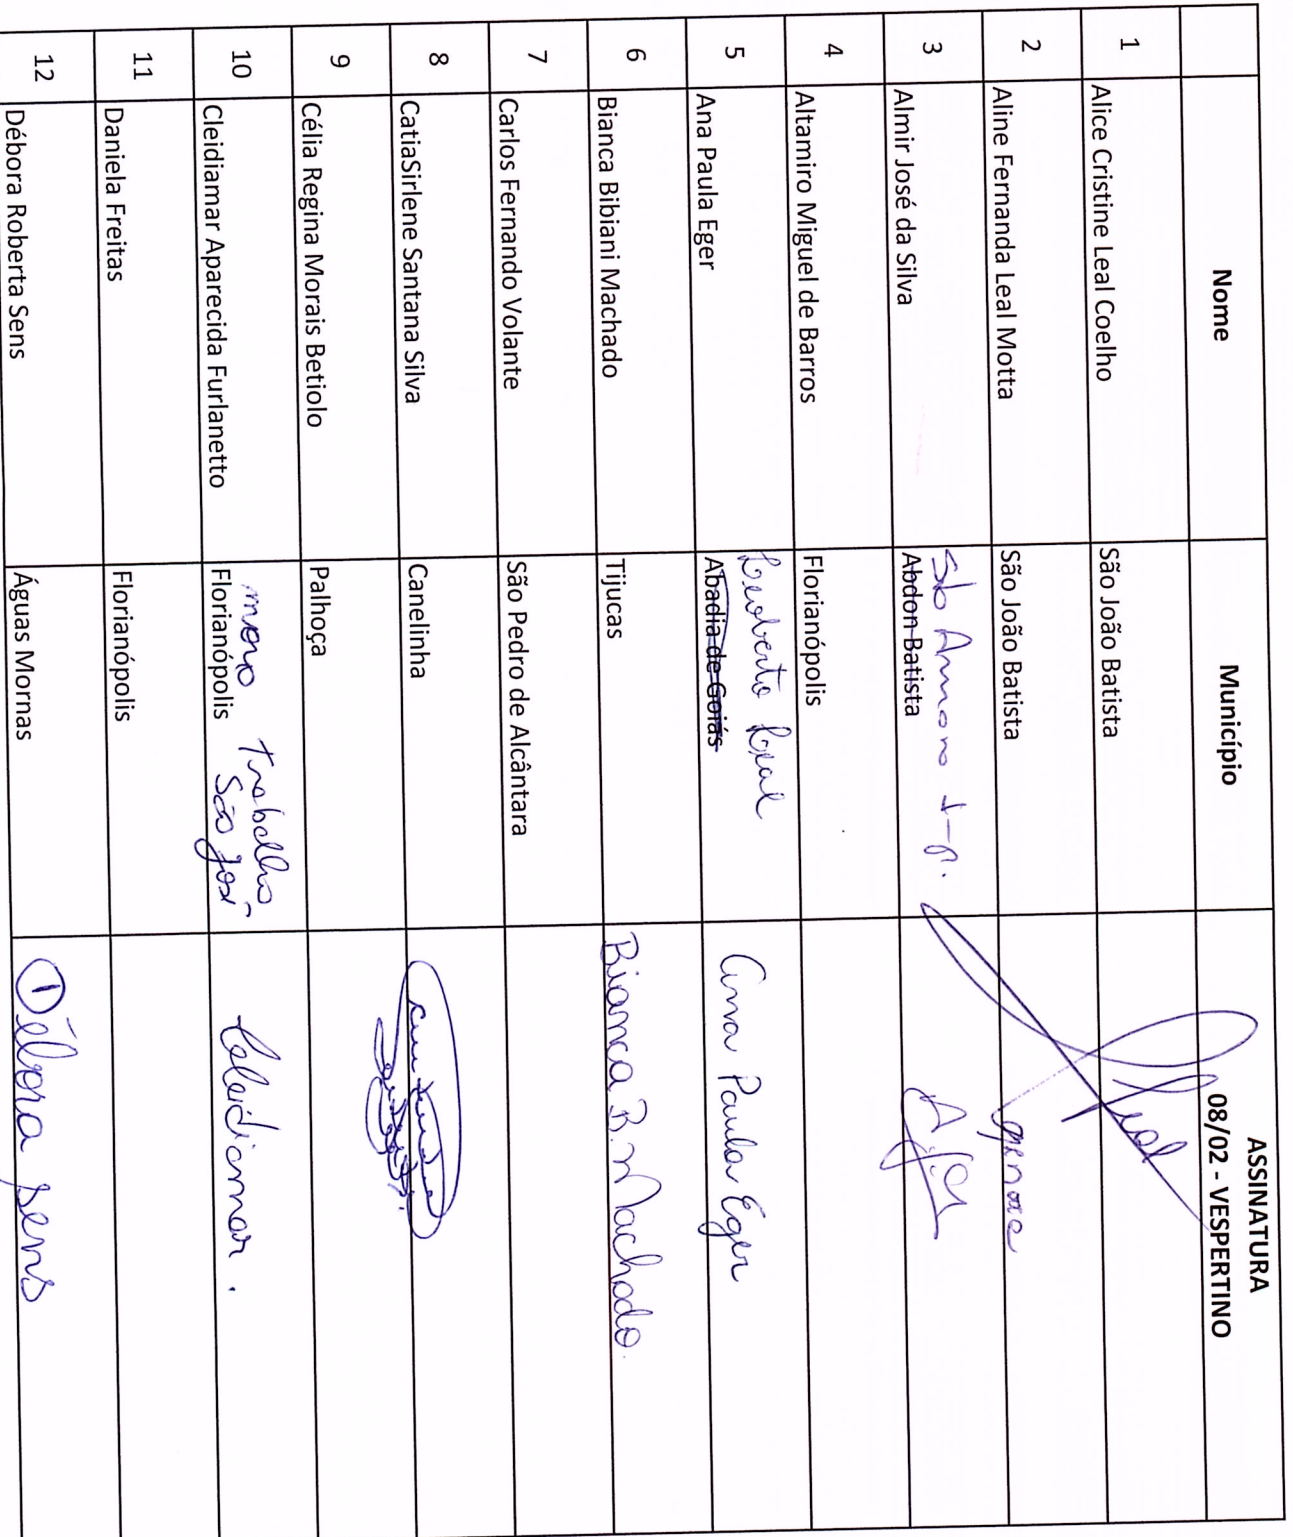 Nome Município ASSINATURA
08/02 - VESPERTINO
1 Alice Cristine Leal Coelho São João Batista
2 Aline Fernanda Leal Motta São João Batista
3 Almir José da Silva Sto Amaro
Abdon Batista
4 Altamiro Miguel de Barros Florianópolis
5 Ana Paula Eger Leoberto Leal Ana Paula Eger
Abadia de Goiás
6 Bianca Bibiani Machado Tijucas Bianca B. Machado
7 Carlos Fernando Volante São Pedro de Alcântara
8 CatiaSirlene Santana Silva Canelinha
9 Célia Regina Morais Betiolo Palhoça
10 Cleidiamar Aparecida Furlanetto moro trabalho Cleidiamar.
Florianópolis São José
11 Daniela Freitas Florianópolis
12 Débora Roberta Sens Águas Mornas Débora Sens